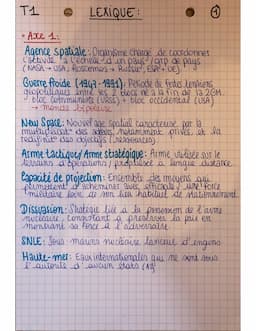 T1 LEXIQUE: 1
• Axe 1:
Agence spatiale: Organisme chargé de coordonner
l'activité à l'échelle d'un pays / grp de pays
(NASA → USA; Roscosmos → Russie; ESA → UE)
Guerre froide (1947-1991): Période de fortes tensions
géopolitiques entre les 2 blocs né à la fin de la 2GM.
bloc communiste (URSS) + bloc occidental (USA)
→ monde bipolaire
New Space: Nouvel age spatial caractérisé par la
multiplicat° des acteurs, notamment privés, et la
redéfinit° des objectifs
Arme tactique/Arme stratégique: Arme utilisée sur le
terrain d'opérations / pr utiliser à longue distance
Capacité de projection: Ensemble des moyens qui
permettent d'acheminer avec efficacité une force
militaire loin de son lieu habituel de stationnement
Dissuasion: Stratégie liée à la possession de l'arme
nucléaire, consistant à préserver la paix en
montrant sa force à l'adversaire
SNLE: Sous-marin nucléaire lanceur d'engins
Haute-mer: Eaux internationales qui ne sont sous
l'autorité d'aucun état